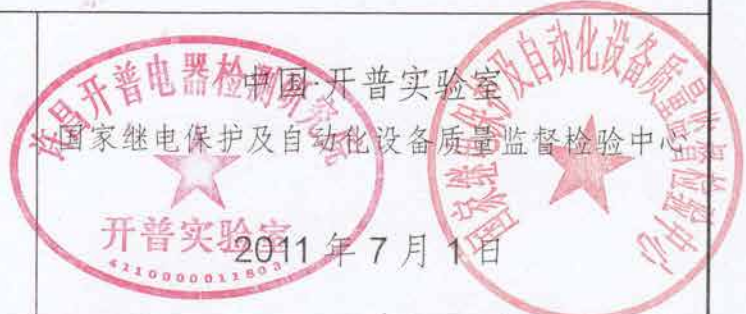 中国·开普实验室
国家继电保护及自动化设备质量监督检验中心
2011 年 7 月 1 日
许昌开普电器检测研究院
开普实验室
4110000011803
国家继电保护及自动化设备质量监督检验中心